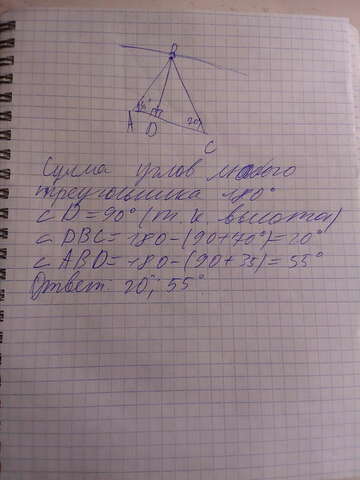 B
A
D
20
C
Сумма углов любого
треугольника 180°
∠ D = 90° (т.к. высота)
∠ DBC = 180 - (90 + 70°) = 20°
∠ ABD = 180 - (90 + 35) = 55°
Ответ 20°; 55°